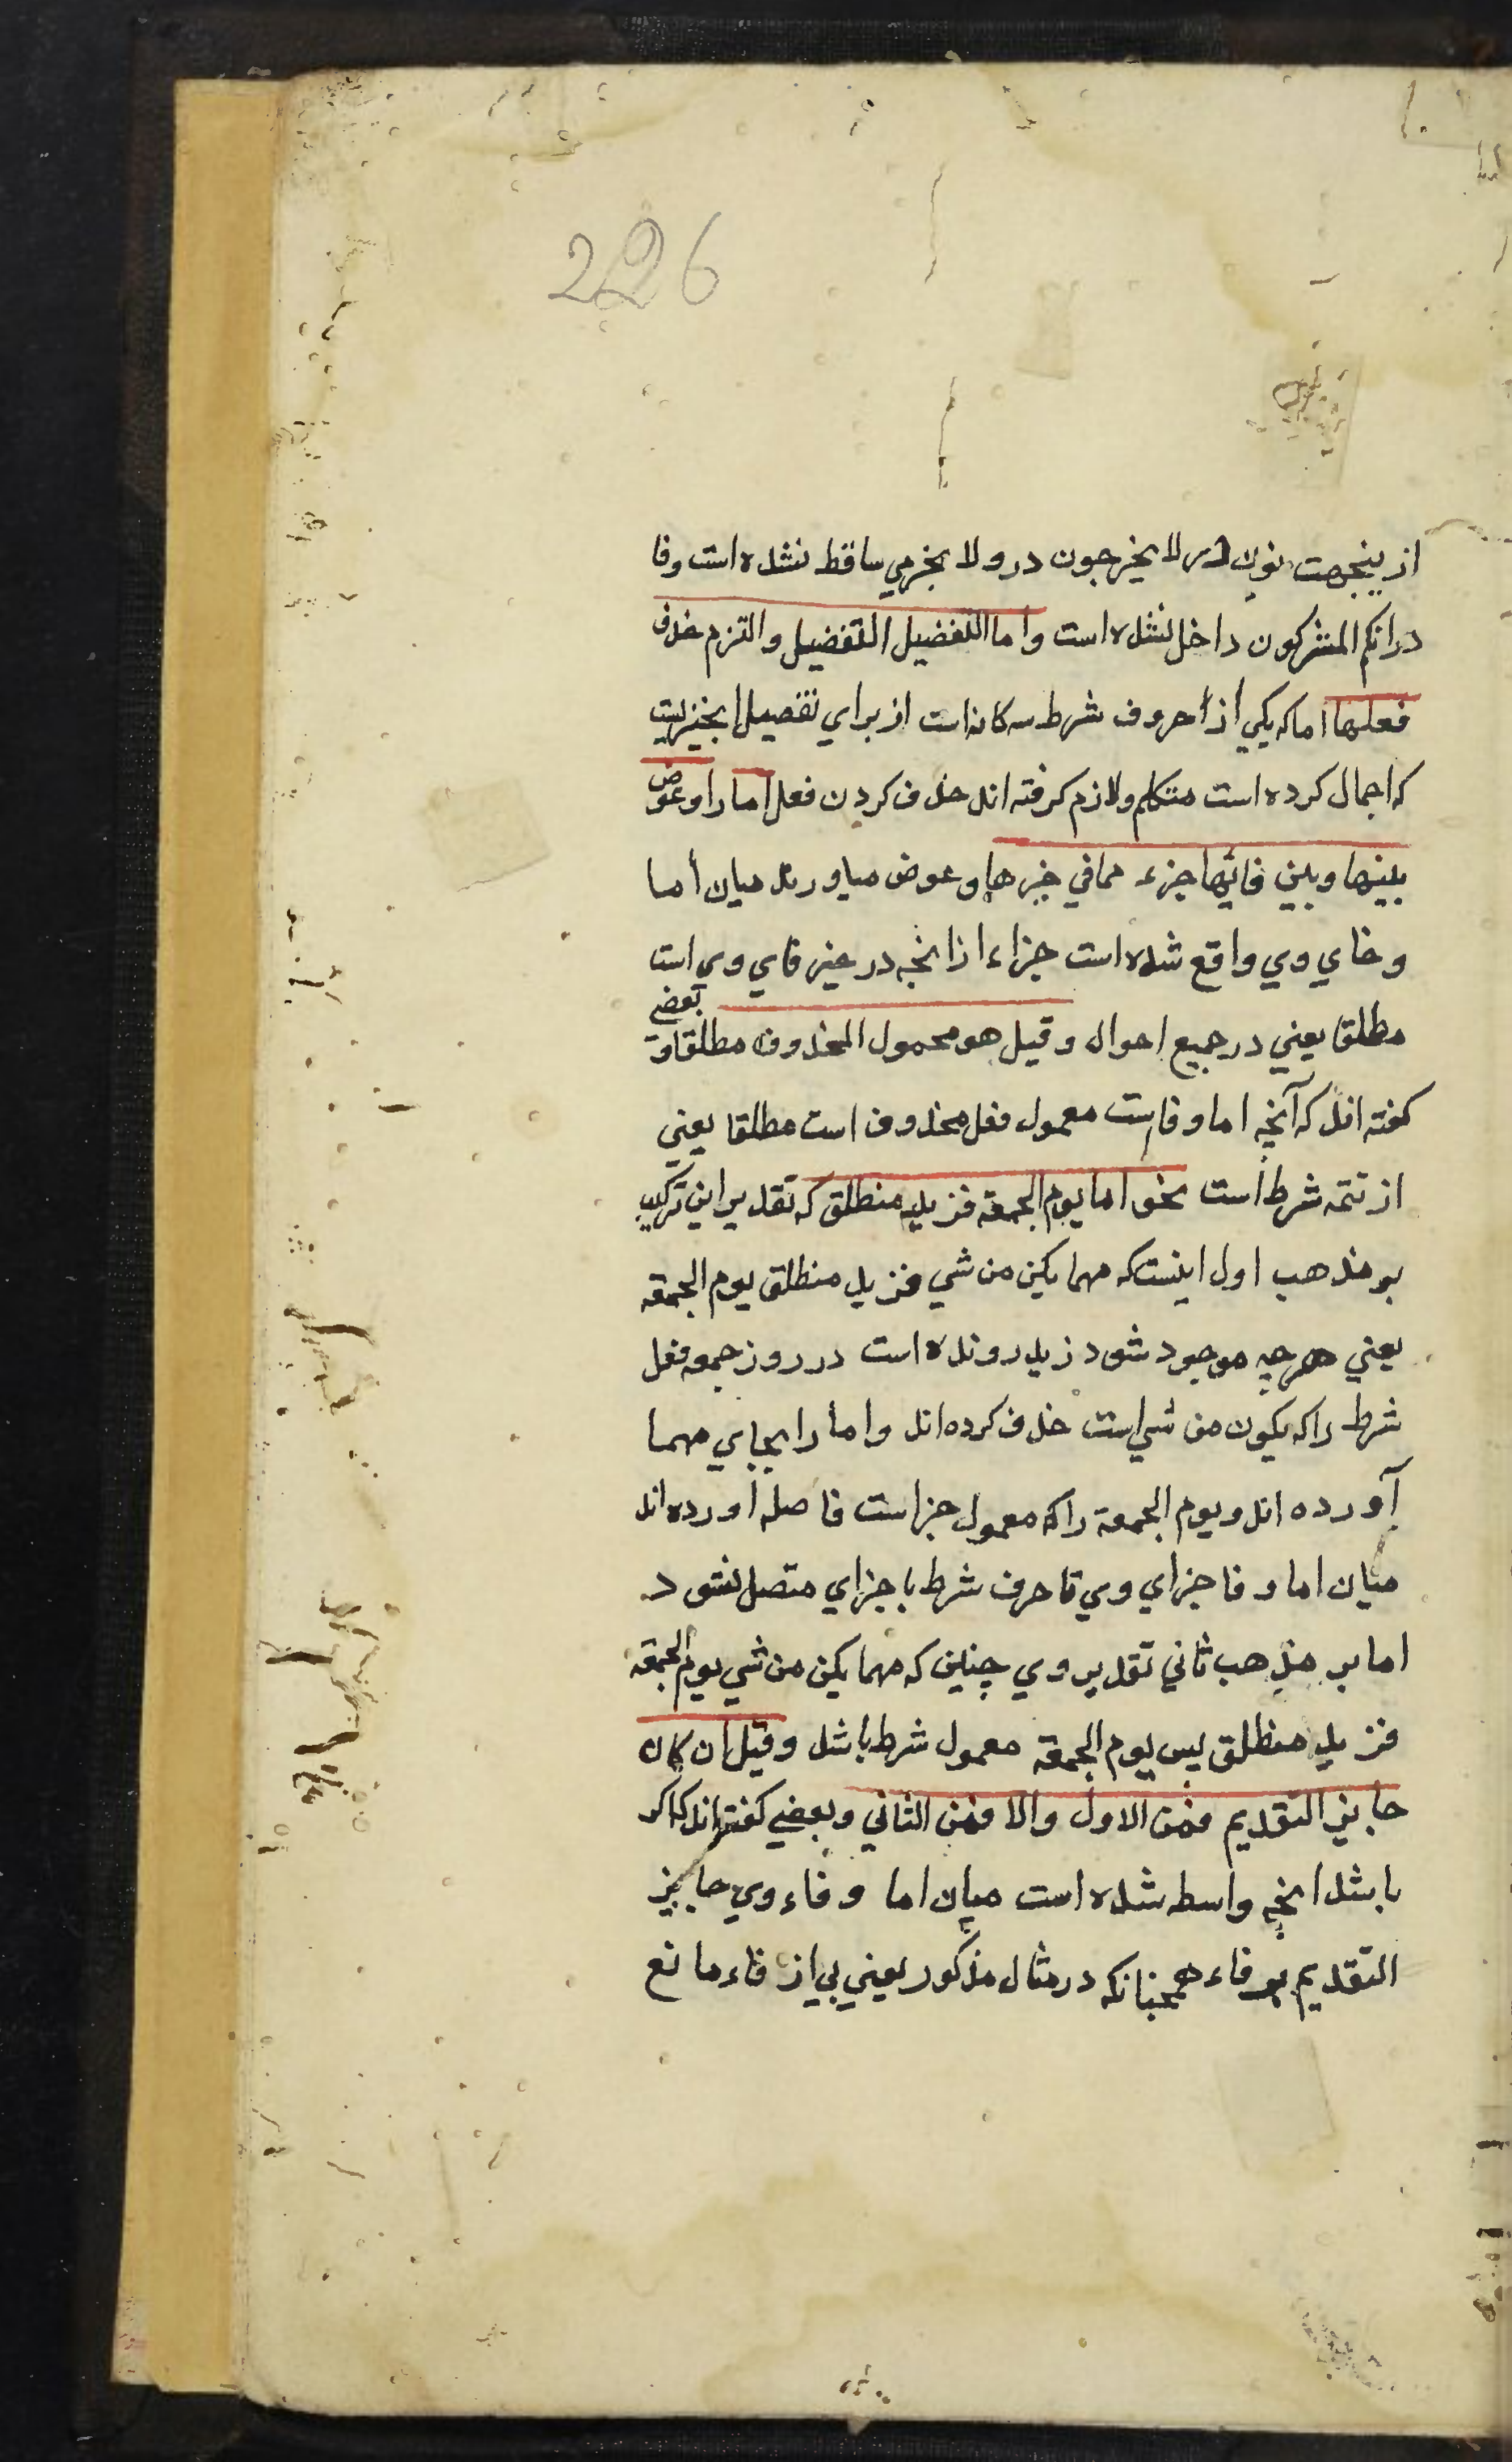 226
ازینجهت نون در لا یخرجون درو لا بجزمي ساقط نشده است وفا
درانکم المشرکون داخل نشده است واما التفصیل التفضیل والتزم حذف
فعلها اما که یکي از حروف شرط سه کانه است از براي تفصیل انچیزیست
که اجمال کرده است متکلم ولازم کرفته اند حذف کردن فعل اما را وعوض
بینها وبین فائها جزء مما في حیزها وعوض میاورند میان أما
وفاي وي واقع شده است جزاء از انچه در حیز فاي وي است
مطلقا یعني در جمیع احوال وقیل هو معمول المحذوف مطلقا و بعضي
کفته اند که آنچه اما وفاست معمول فعل محذوف است مطلقا یعني
از تتمه شرط است نحو اما یوم الجمعة فزید منطلق که تقدیر این ترکیب
بر مذهب اول اینست که مهما یکن من شي فزید منطلق یوم الجمعة
یعني هرچه موجود شود زید رونده است در روز جمعه فعل
شرط را که یکون من شي است حذف کرده اند واما را بجاي مهما
آورده اند ویوم الجمعة را که معمول جزاست فاصله اورده اند
میان اما وفا جزاي وي تا حرف شرط با جزاي متصل نشود
اما بر مذهب ثاني تقدیر وي چنین که مهما یکن من شي یوم الجمعة
فزید منطلق پس یوم الجمعة معمول شرط باشد وقیل ان کان
جایز التقدیم فمن الاول والا فمن الثاني وبعضي کفته اند که اکر
باشد انچه واسطه شده است میان اما وفاء وي جایز
التقدیم بر فاء همچنانکه در مثال مذکور یعني بي از فاء مانع